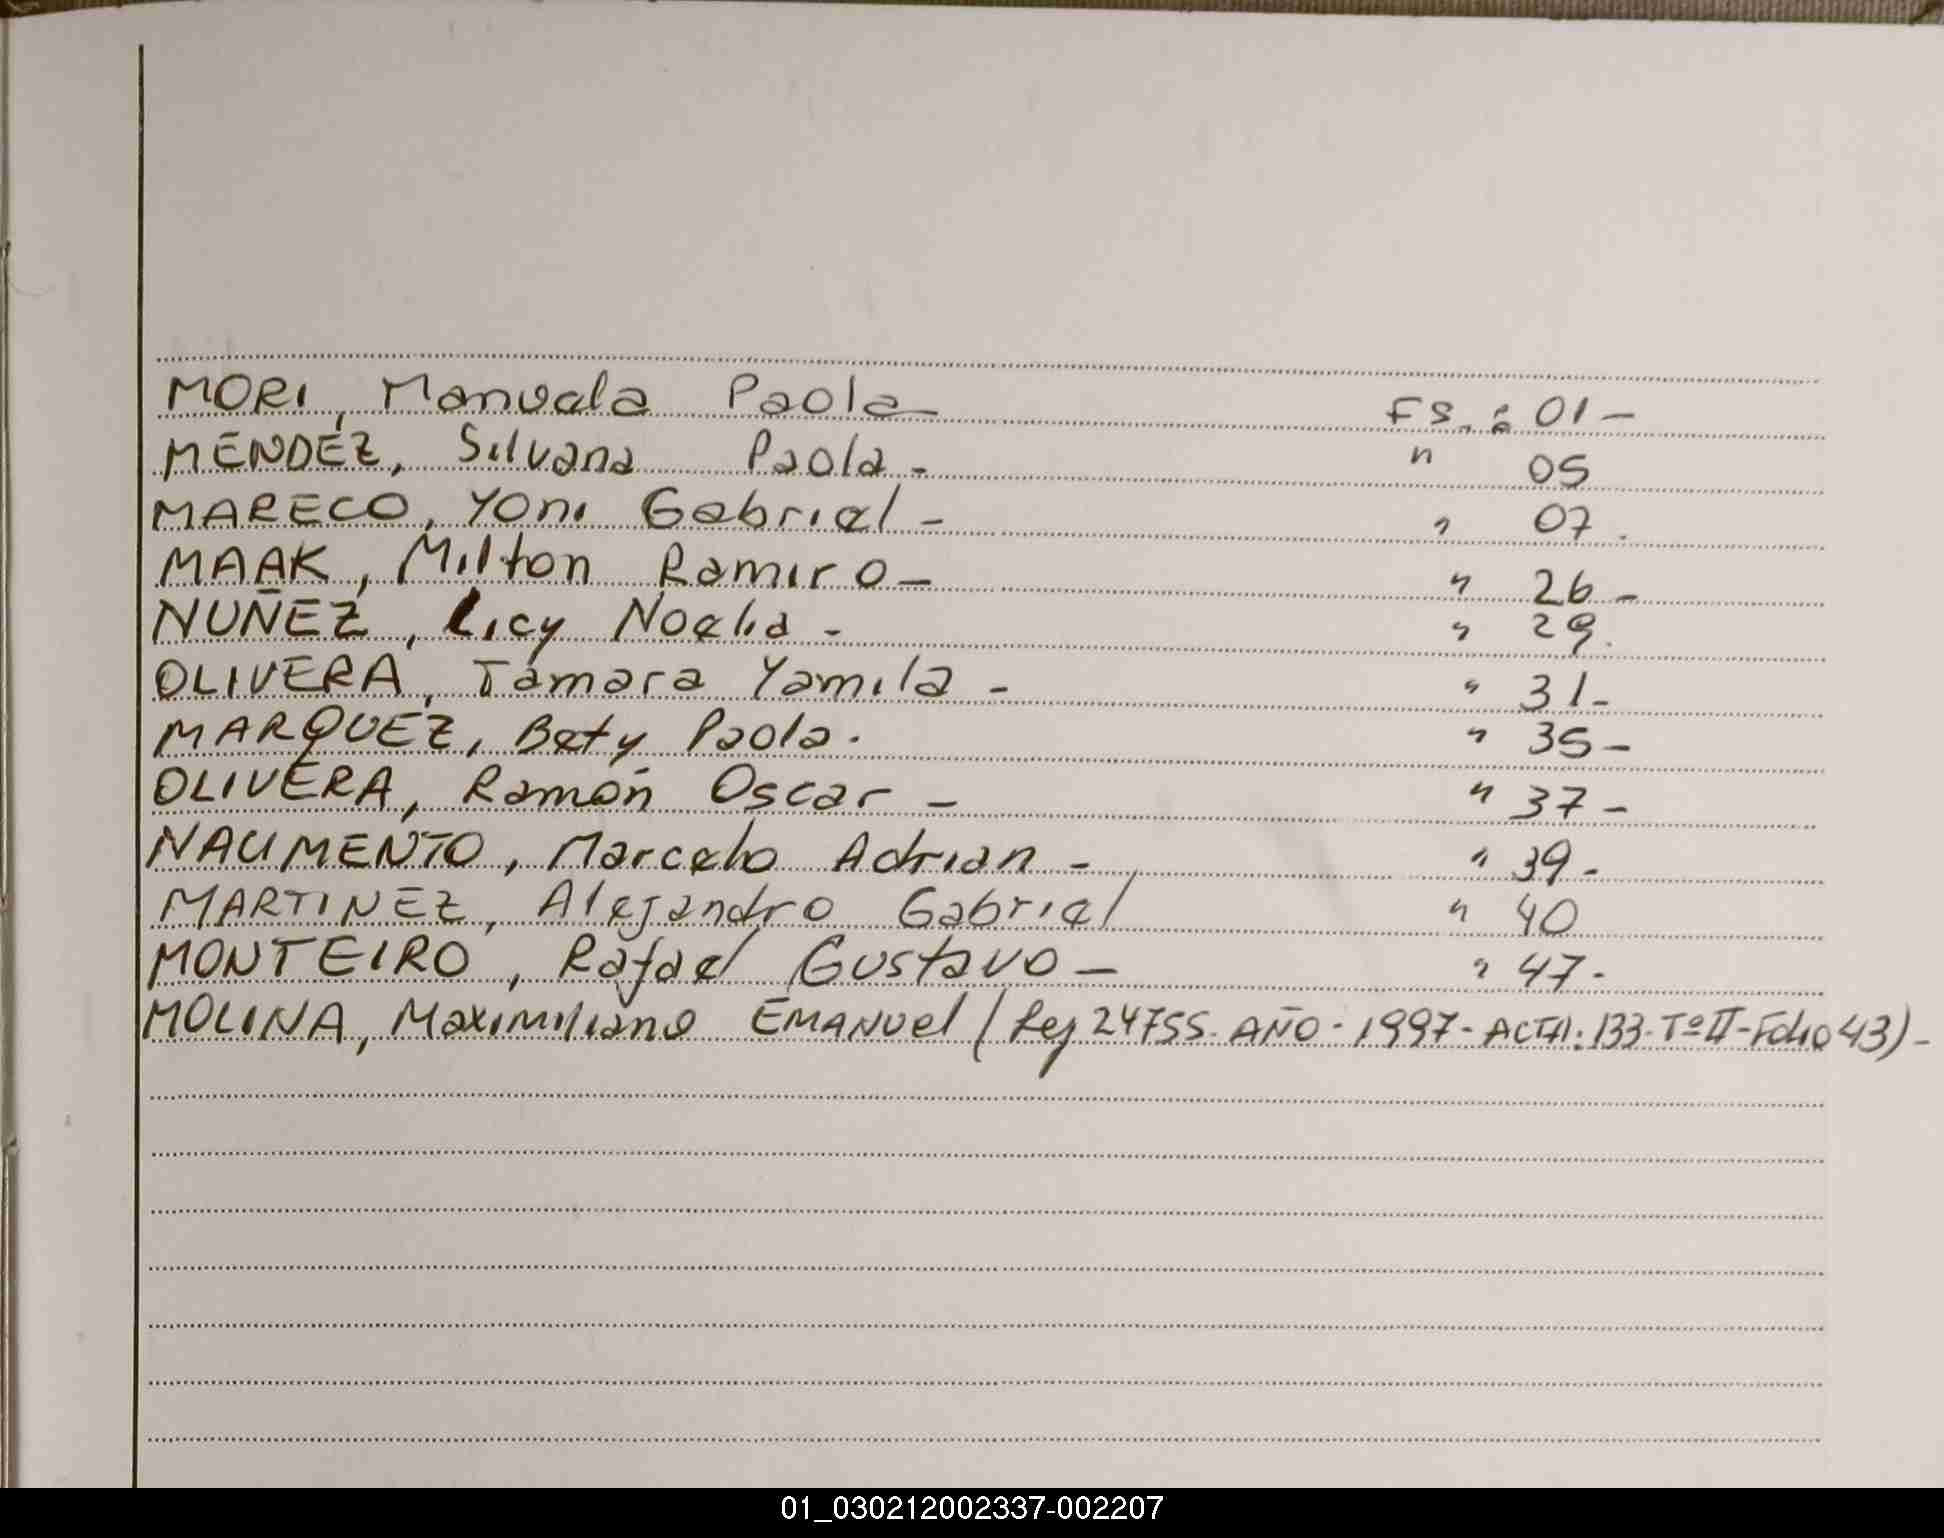 MORI, Manuela Paola - FS. : 01 -
MENDEZ, Silvana Paola - " 05
MARECO, Yoni Gabriel - " 07.
MAAK, Milton Ramiro - " 26 -
NUÑEZ, Licy Noelia - " 29.
OLIVERA, Tamara Yamila - " 31 -
MARQUEZ, Bety Paola. " 35 -
OLIVERA, Ramón Oscar - " 37 -
NAUMENTO, Marcelo Adrian - " 39 -
MARTINEZ, Alejandro Gabriel " 40
MONTEIRO, Rafael Gustavo - " 47 -
MOLINA, Maximiliano EMANUEL (Ley 24755. AÑO - 1997 - ACTA: 133 - Tº II - Folio 43) -
01_030212002337-002207